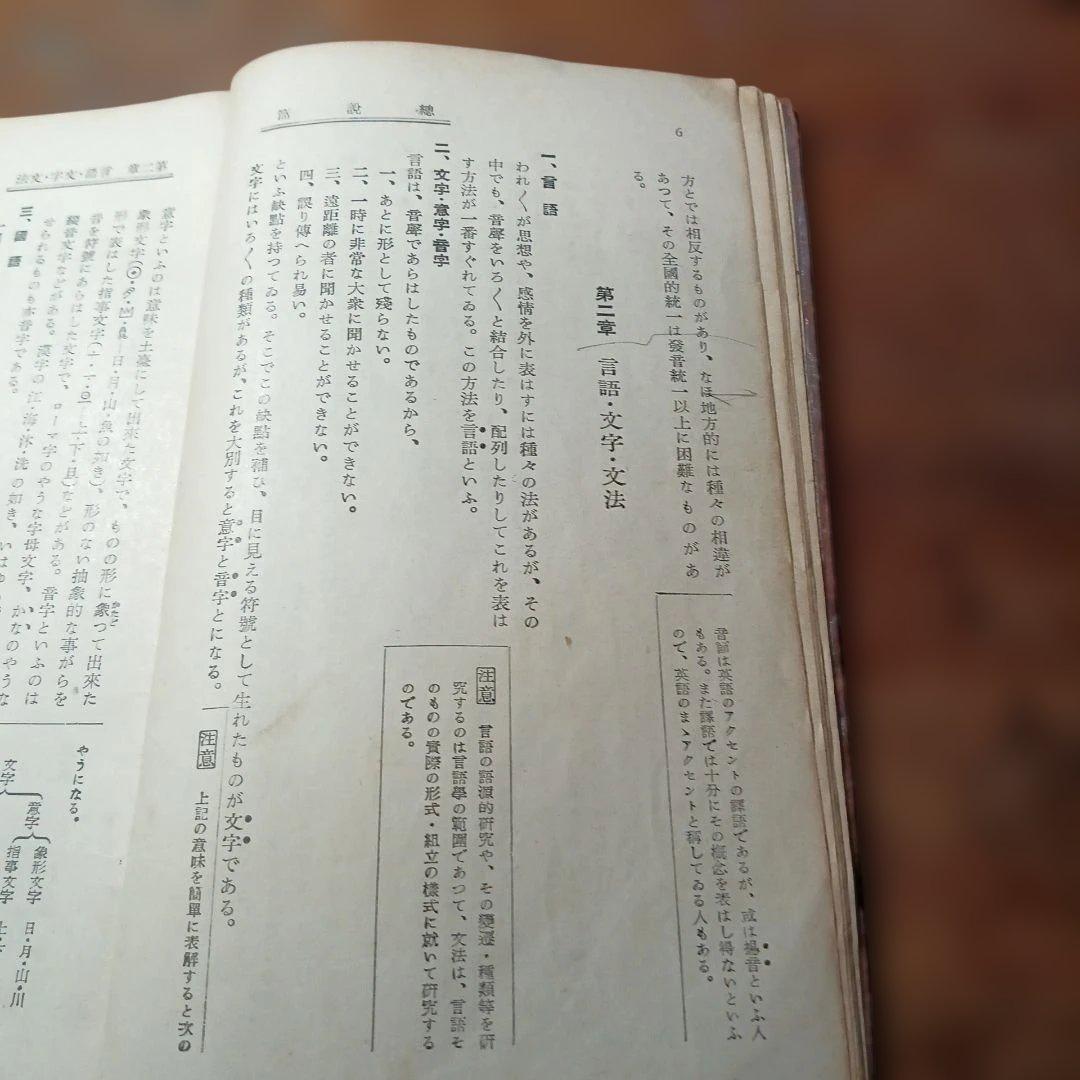 總說篇
6
方とでは相反するものがあり、なほ地方的には種々の相違が
あつて、その全國的統一は發音統一以上に困難なものがあ
る。
音調は英語のアクセントの譯語であるが、或は揚音といふ人
もある。また譯語では十分にその概念を表はし得ないといふ
ので、英語のまゝアクセントと稱してゐる人もある。
第二章 言語・文字・文法
一、言語
われ〳〵が思想や、感情を外に表はすには種々の法があるが、その
中でも、音聲をいろ〳〵と結合したり、配列したりしてこれを表は
す方法が一番すぐれてゐる。この方法を言語といふ。
注意 言語の語源的研究や、その變遷・種類等を研
究するのは言語學の範圍であつて、文法は、言語そ
のもの實際の形式・組立の樣式に就いて研究する
のである。
二、文字・意字・音字
言語は、音聲であらはしたものであるから、
一、あとに形として殘らない。
二、一時に非常な大衆に聞かせることができない。
三、遠距離の者に聞かせることができない。
四、誤り傳へられ易い。
といふ缺點を持つてゐる。そこでこの缺點を補ひ、目に見える符號として生れたものが文字である。
文字にはいろ〳〵の種類があるが、これを大別すると意字と音字とになる。
注意 上記の意味を簡單に表解すると次の
第二章 言語・文字・文法
意字といふのは意味を土臺にして出來た文字で、ものの形に象つて出來た
かたど
象形文字
日・月・山・魚の如き)、形のない抽象的な事がらを
形で表はした指事文字
上・下・旦)などがある。音字といふのは
音を符號にあらはした文字で、ローマ字のやうな字母文字、かなのやうな
綴音文字などがある。漢字の江・海・沐・洗の如き、いはゆ
せられるものも亦音字である。
三、國語
やうになる。
文字
意字
象形文字 日・月・山・川
指事文字